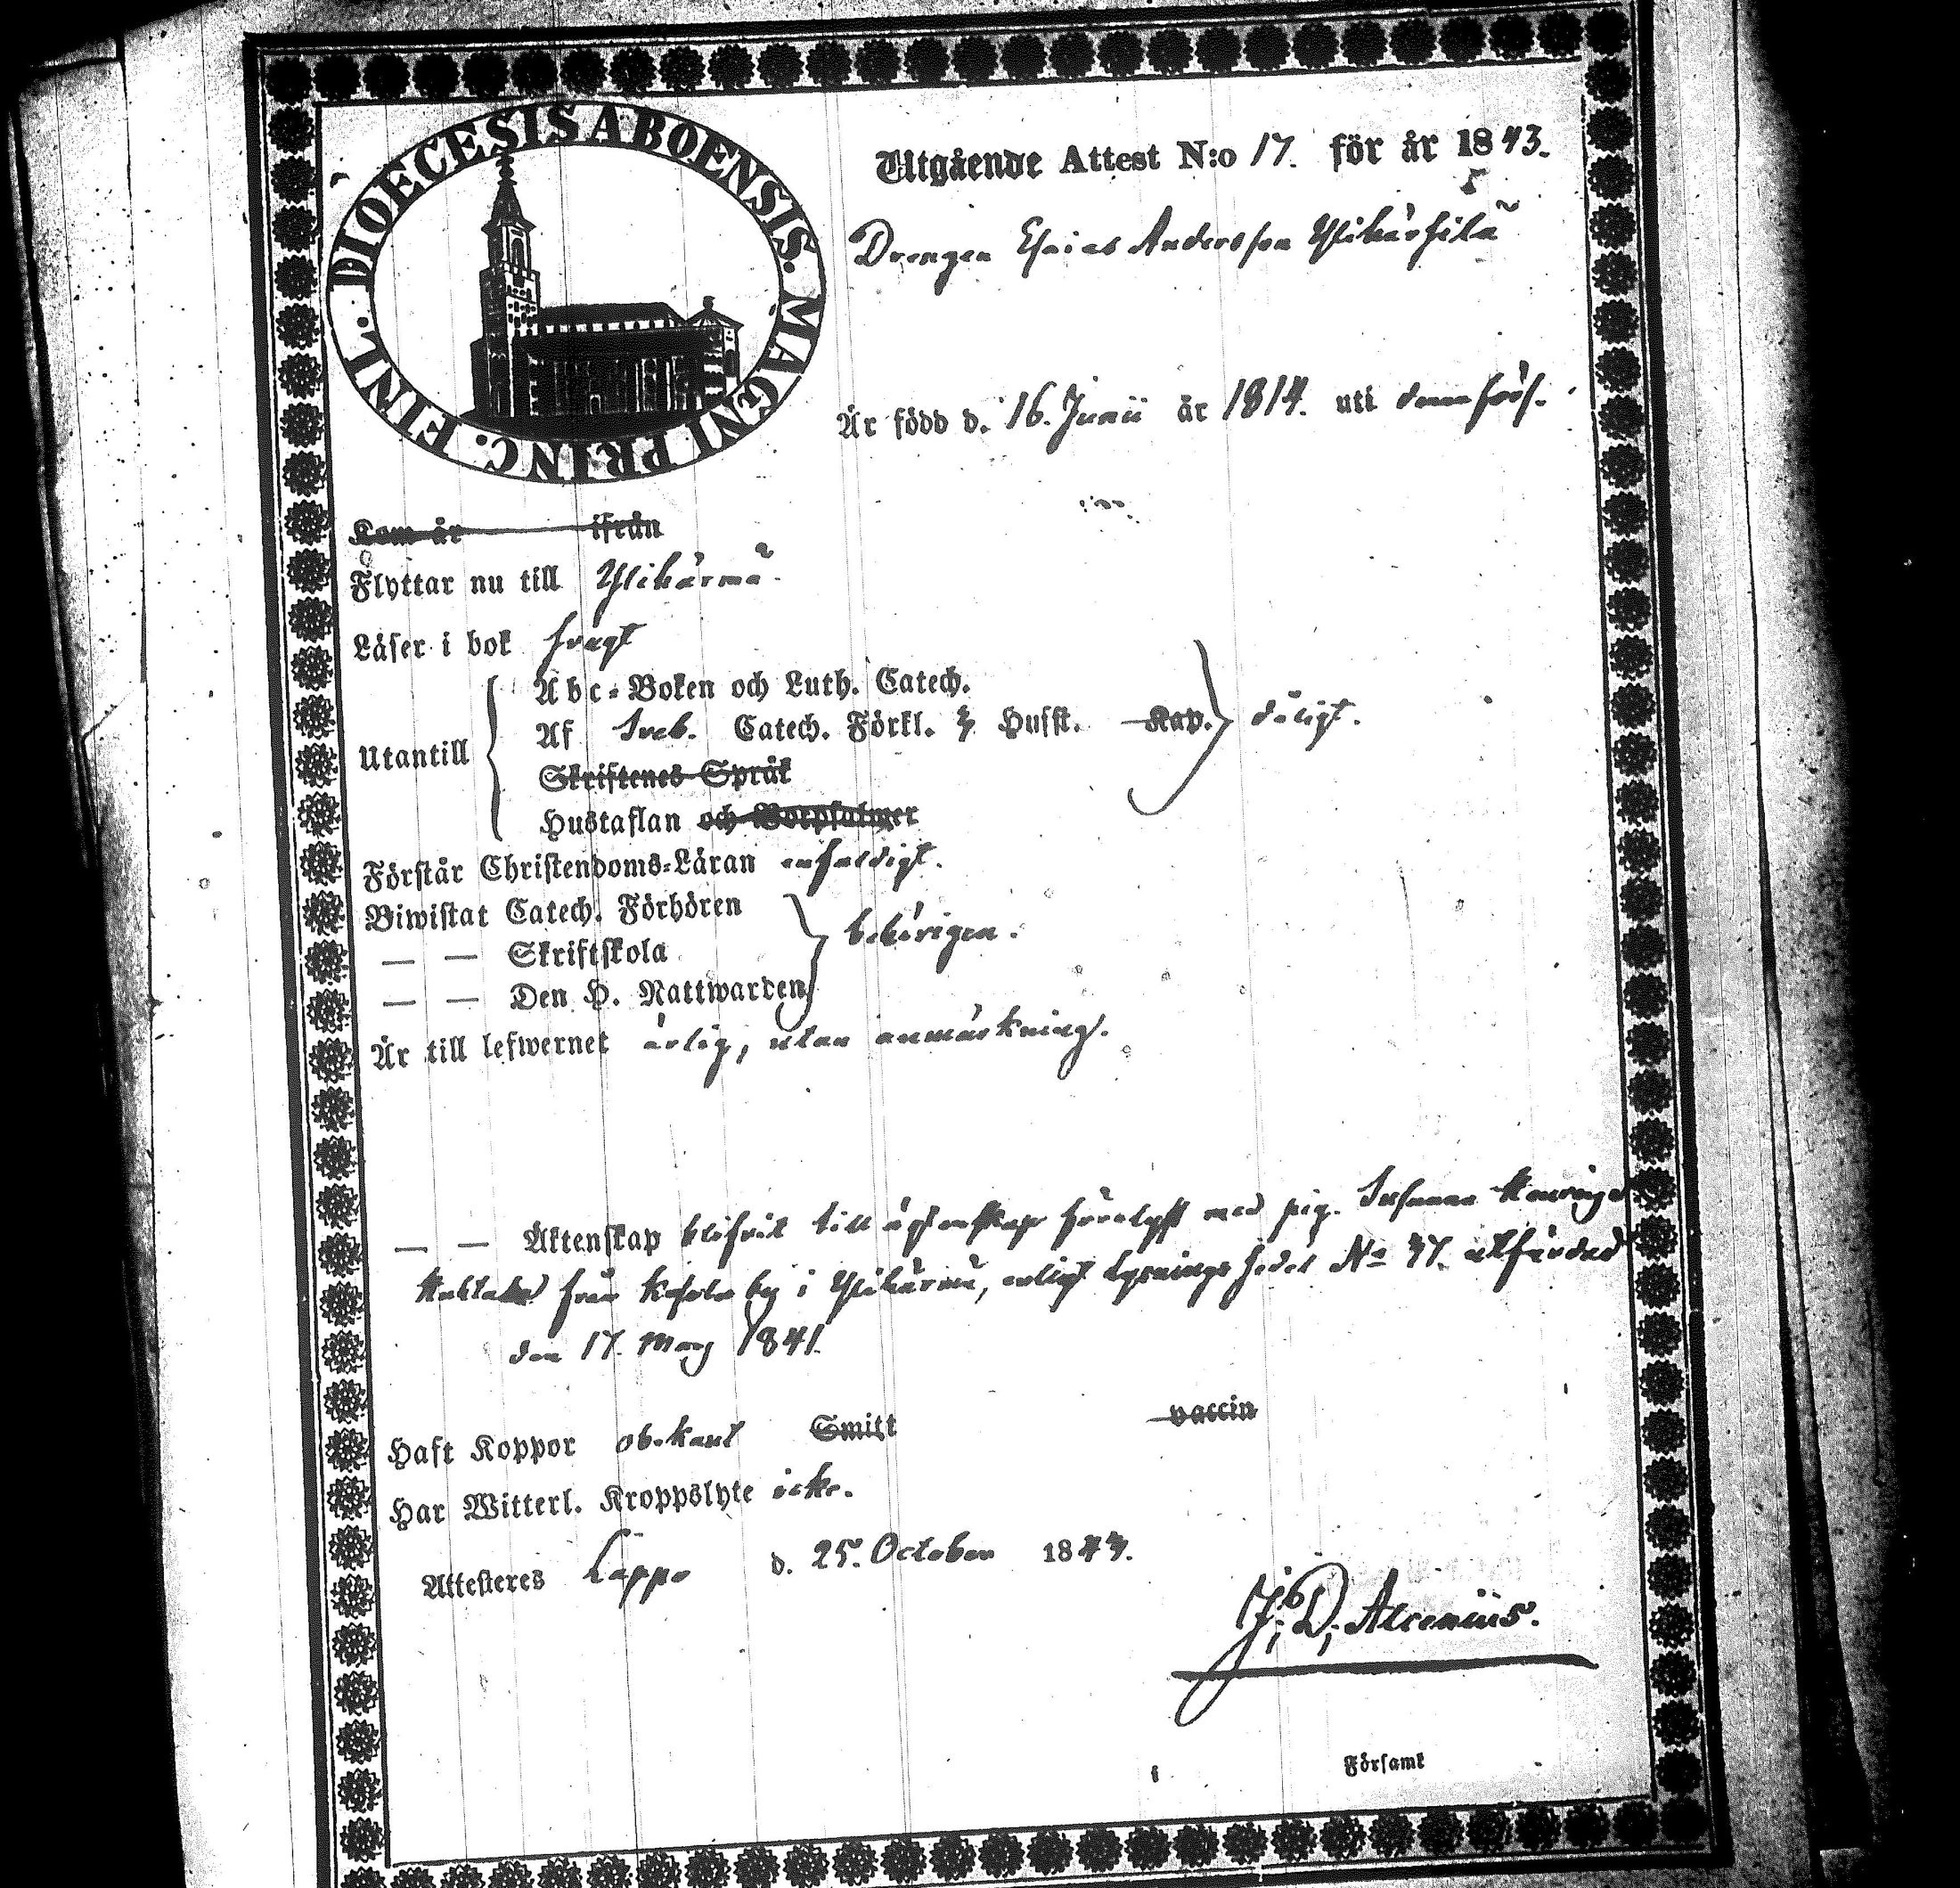 DIOECESIS ABOENSIS. MAGNI PRINC. FINL.
Utgående Attest N:o 17. för år 1843.
Drengen Esaias Andersson Ylikärsilä
Är född d. 16. Junii år 1814. uti denna förs.
Kom år ifrån
Flyttar nu till Ylikärmä.
Läser i bok svagt
Utantill
Abc-Boken och Luth. Catech.
Af Sveb. Catech. Förkl. 3 Hufst. Kap. dåligt.
Skriftenes Språk
Hustaflan och Botpsalmer
Förstår Christendoms-Läran enfaldigt.
Biwistat Catech. Förhören
— — Skriftskola behörigen.
— — Den H. Nattwarden
Är till lefwernet ärlig, utan anmärkning.
— — Äktenskap blifvit till äktenskap förelyst med pig. Susanna
från by i Ylikärmä, enligt lysnings sedel No 37. utfärdad
den 17. Maij 1841.
Haft Koppor obekant Smitt vaccin
Har Witterl. Kroppslyte icke.
Attesteres Lappo d. 25. October 1843.
J. D. Alcenius.
i Församl